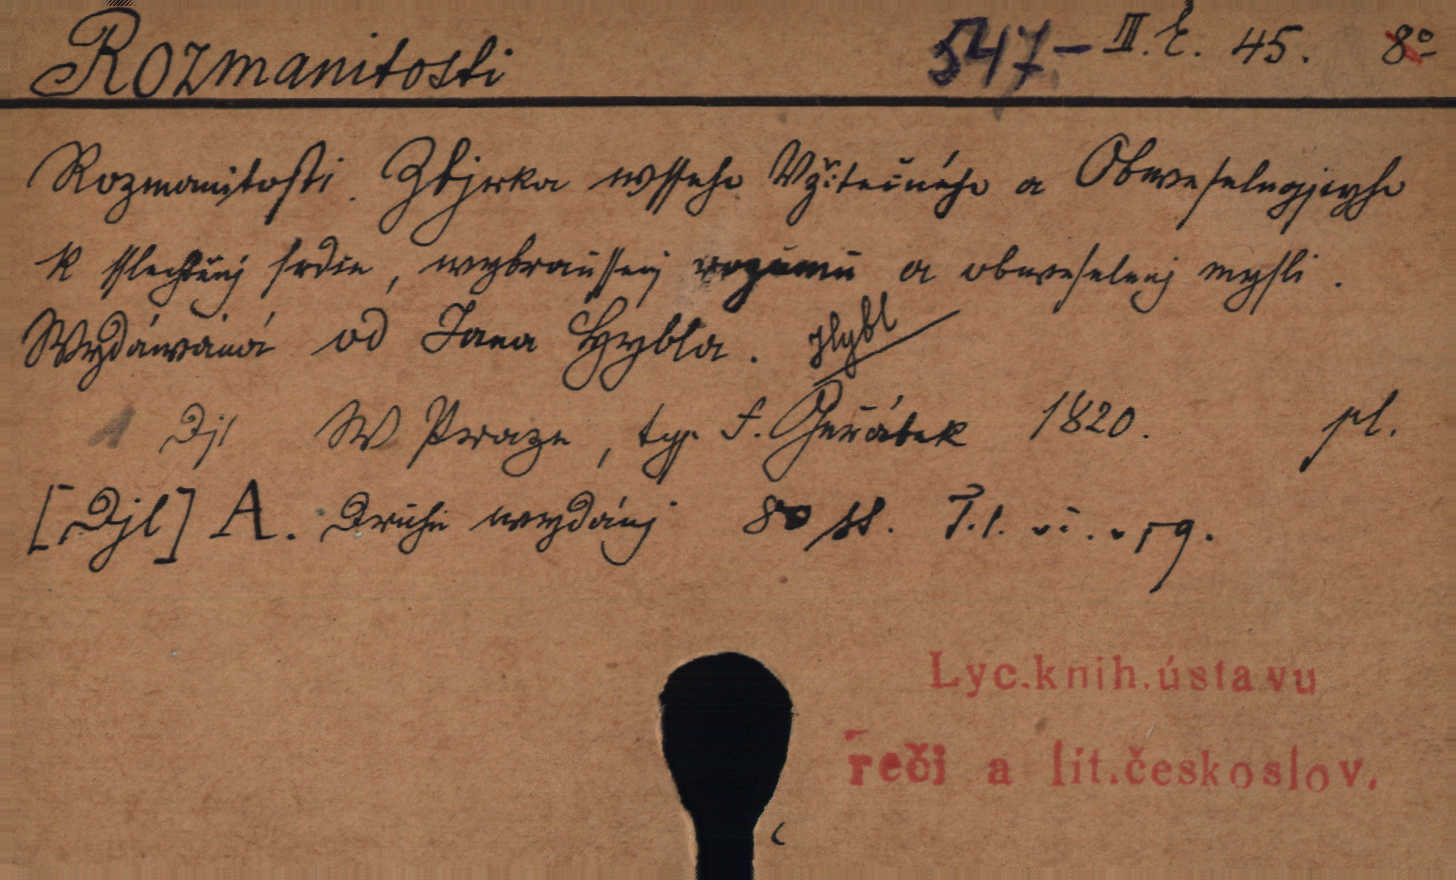 Rozmanitosti 547 - III. E. 45. 8º
Rozmanitosti. Zbjrka wsseho Vžitečného a Obweselugjcyho
k sslechtěnj srdce, wybraussenj rozumu a obweselenj mysli.
Wydáwána od Jana Hybla. Hybl
1 Djl W Praze, typ. F. Geřábek 1820. pl.
[Djl] A. Druhé wydánj 80 ss. T. l.
Lyc.knih.ústavu
řeči a lit.českoslov.